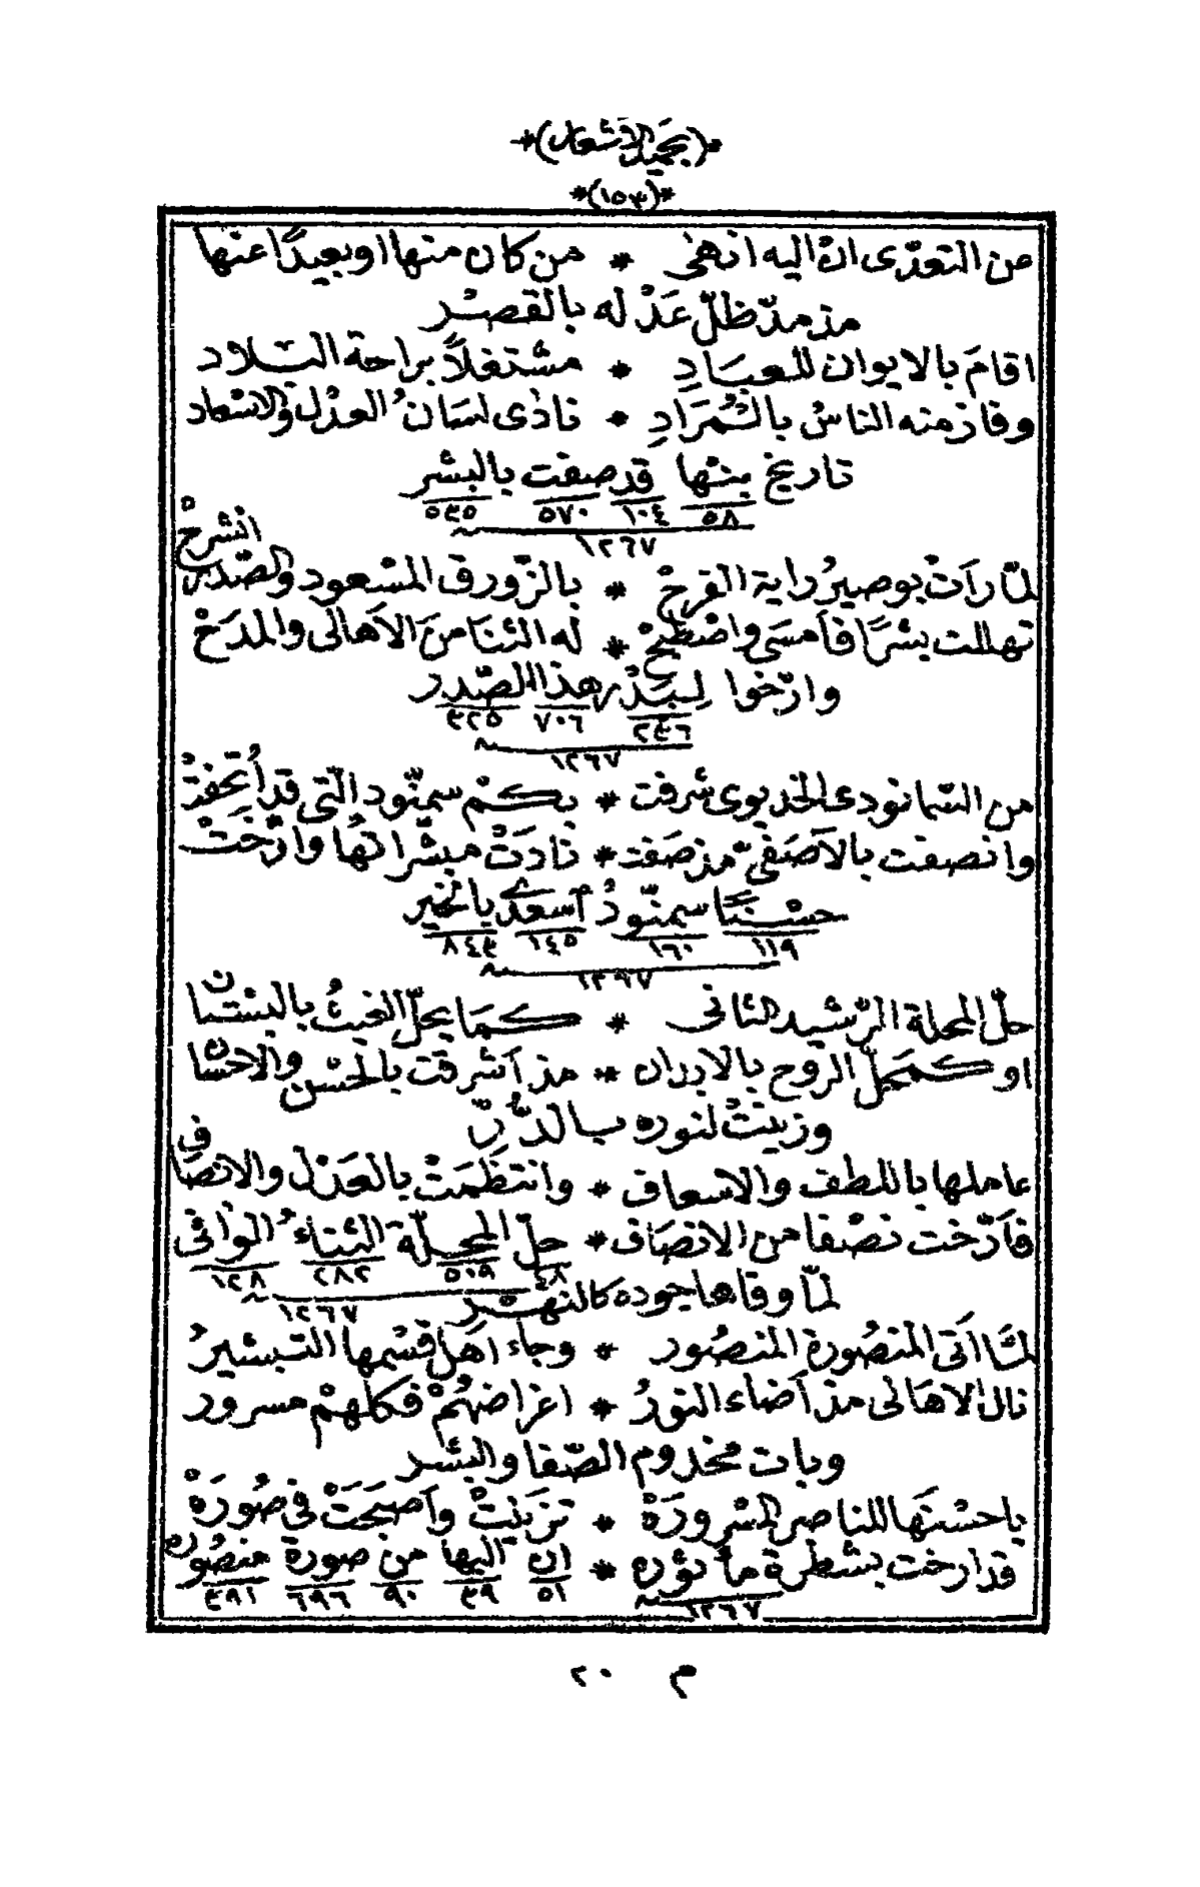 *(بجميد الأشعار)*
*(١٥٣)*
من التعدّى ان اليه انهى * من كان منها او بعيدًا عنها
مذ مدّ ظلّ عَدْله بالقصْر
اقامَ بالايوان للعبَادِ * مشتغلاً براحة البلاد
وفاز منه الناسُ بالمُرَادِ * نادى لسَانُ العدْل والاسْعاد
تاريخ بنْها قد صفت بالبشر
٥٨ ١٠٤ ٥٧٠ ٥٣٥
١٢٦٧
لمّا رَاَتْ بوصيرُ راية الفرحْ * بالزّورق المسْعود والصّدر انشرحْ
تهللت بشرًا فاَمسَى واصْطبحْ * له الثنا منَ الاَهالى والمدَحْ
وارّخوا لِبَدْر هذا الصّدر
٢٣٦ ٧٠٦ ٣٢٥
١٢٦٧
من السّمانودى الخديوى شرفت * بكمْ سمنّود الّتى قد اُتحِفتْ
وانصفت بالآصَفىّ مذ صَفت * نادَتْ مبشّراتهُا وارّختْ
حسْنًا سمنّودُ اَسعدى بالخير
١١٩ ١٦٠ ١٤٥ ٨٤٣
١٢٦٧
حلّ المحلة الرّشيد الثانى * كمَا يحلّ الغيثُ بالبسْتان
او كمحَلّ الروح بالابدان * مذ اَشرقت بالحسْن والاحسَان
وزينتْ لنوره بالدُّرِّ
عاملها باللطف والاسعاف * وانتظَمَتْ بالعَدْل والانصَاف
فاَرّخت نصْفا من الانصَاف * حلّ المحلّة الثناءُ الوَافى
٤٨ ٥١٩ ٢٨٢ ١٢٨
لمّا وقاها جوده كالنهْر
١٢٦٧
لمّا اَتى المنصُورة المنصُور * وجاء اَهل قسْمها التبشيرُ
نال الاهَالى مذ اَضاء النورُ * اغراضهُمْ فكلهمْ مسرور
وبات مخدوم الصّفا والبشر
ياحسْنهَا للناصر المسْرورَهْ * تزينتْ واَصبحَتْ فى صُورَهْ
قد ارخت بشطرة مأثوره * ان اليها من صورة منصُوره
٥١ ٣٩ ٩٠ ٦٩٦ ٣٩١
١٢٦٧
م ٢٠